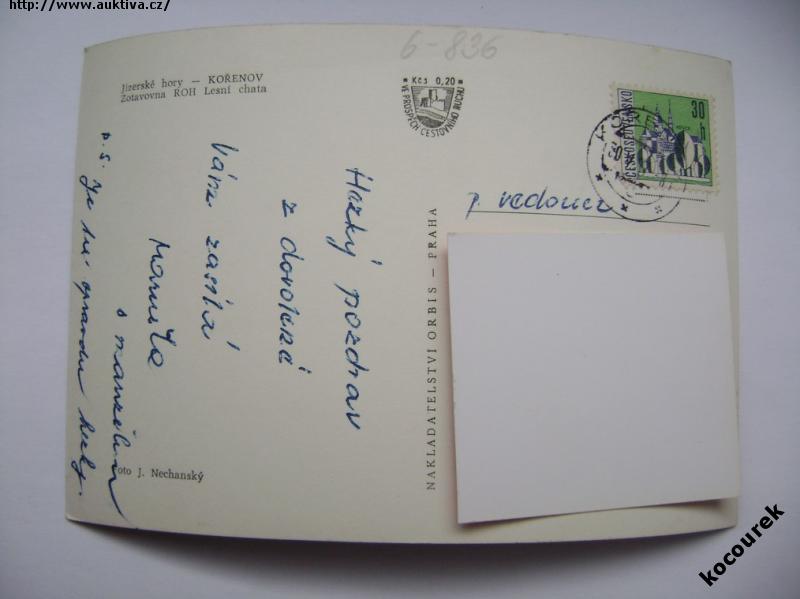 http://www.auktiva.cz/
6-836
Jizerské hory — KOŘENOV
Zotavovna ROH Lesní chata
Kčs 0,20
VE PROSPĚCH CESTOVNÍHO RUCHU
30 h
ČESKOSLOVENSKO
p. vedoucí
Hezký pozdrav
z dovolené
Vám zasílá
s manželem
P.S. Je tu opravdu hezky.
NAKLADATELSTVÍ ORBIS — PRAHA
oto J. Nechanský
kocourek